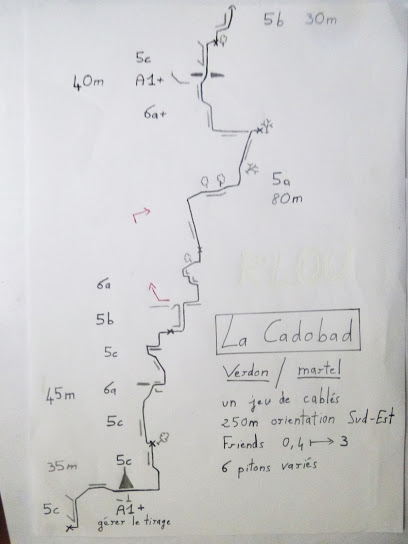 5b 30m
5c
40m A1+
6a+
5a
80m
6a
5b
5c
45m 6a
5c
35m 5c
5c A1+
gérer le tirage
La Cadobad
Verdon / martel
un jeu de cablés
250m orientation Sud-Est
Friends 0,4 ↦ 3
6 pitons variés